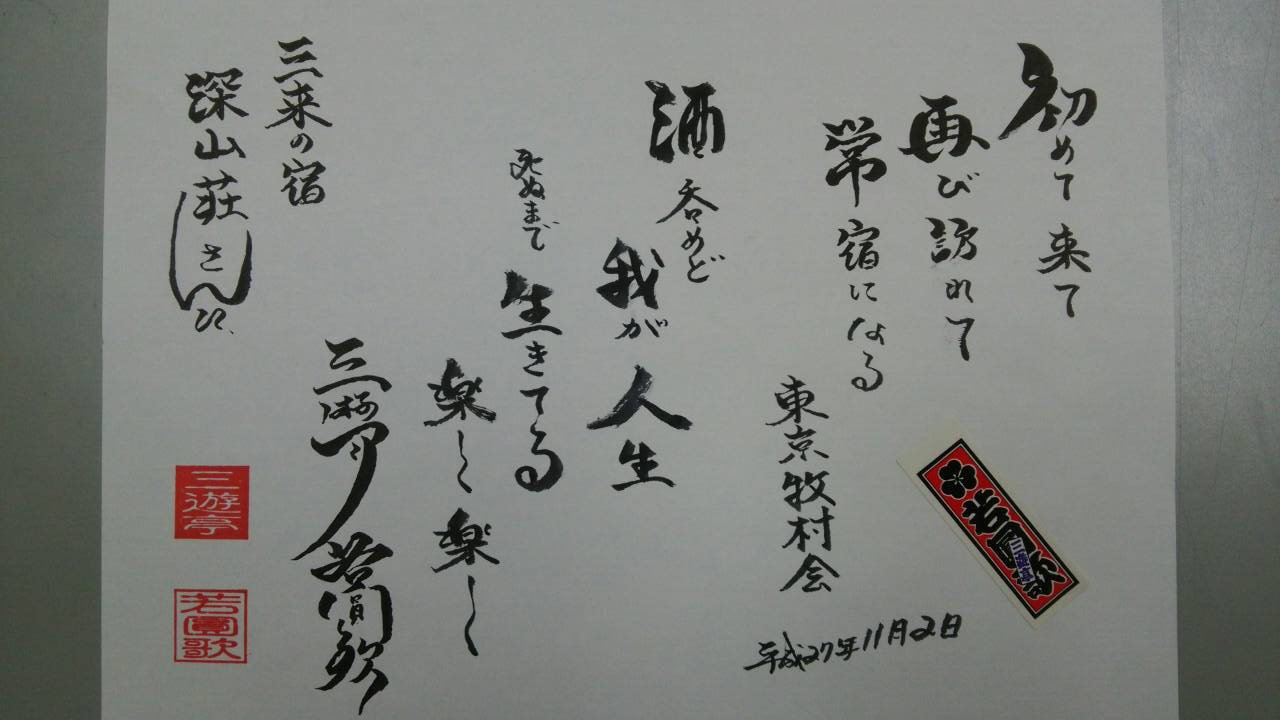 初めて来て
再び訪れて
常宿になる
東京牧村会
平成27年11月2日
酒呑めど
我が人生
死ぬまで
生きてる
楽し楽し
三来の宿
深山荘さん江
三遊亭
若圓歌
三遊亭
若圓歌
若圓歌
三遊亭